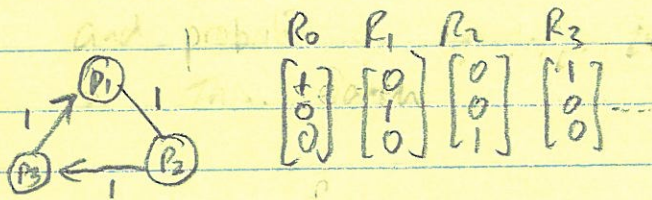 R0 R1 R2 R3
P1 1
1
P3 P2
1
[1 0 0] [0 1 0] [0 0 1] [1 0 0] ...